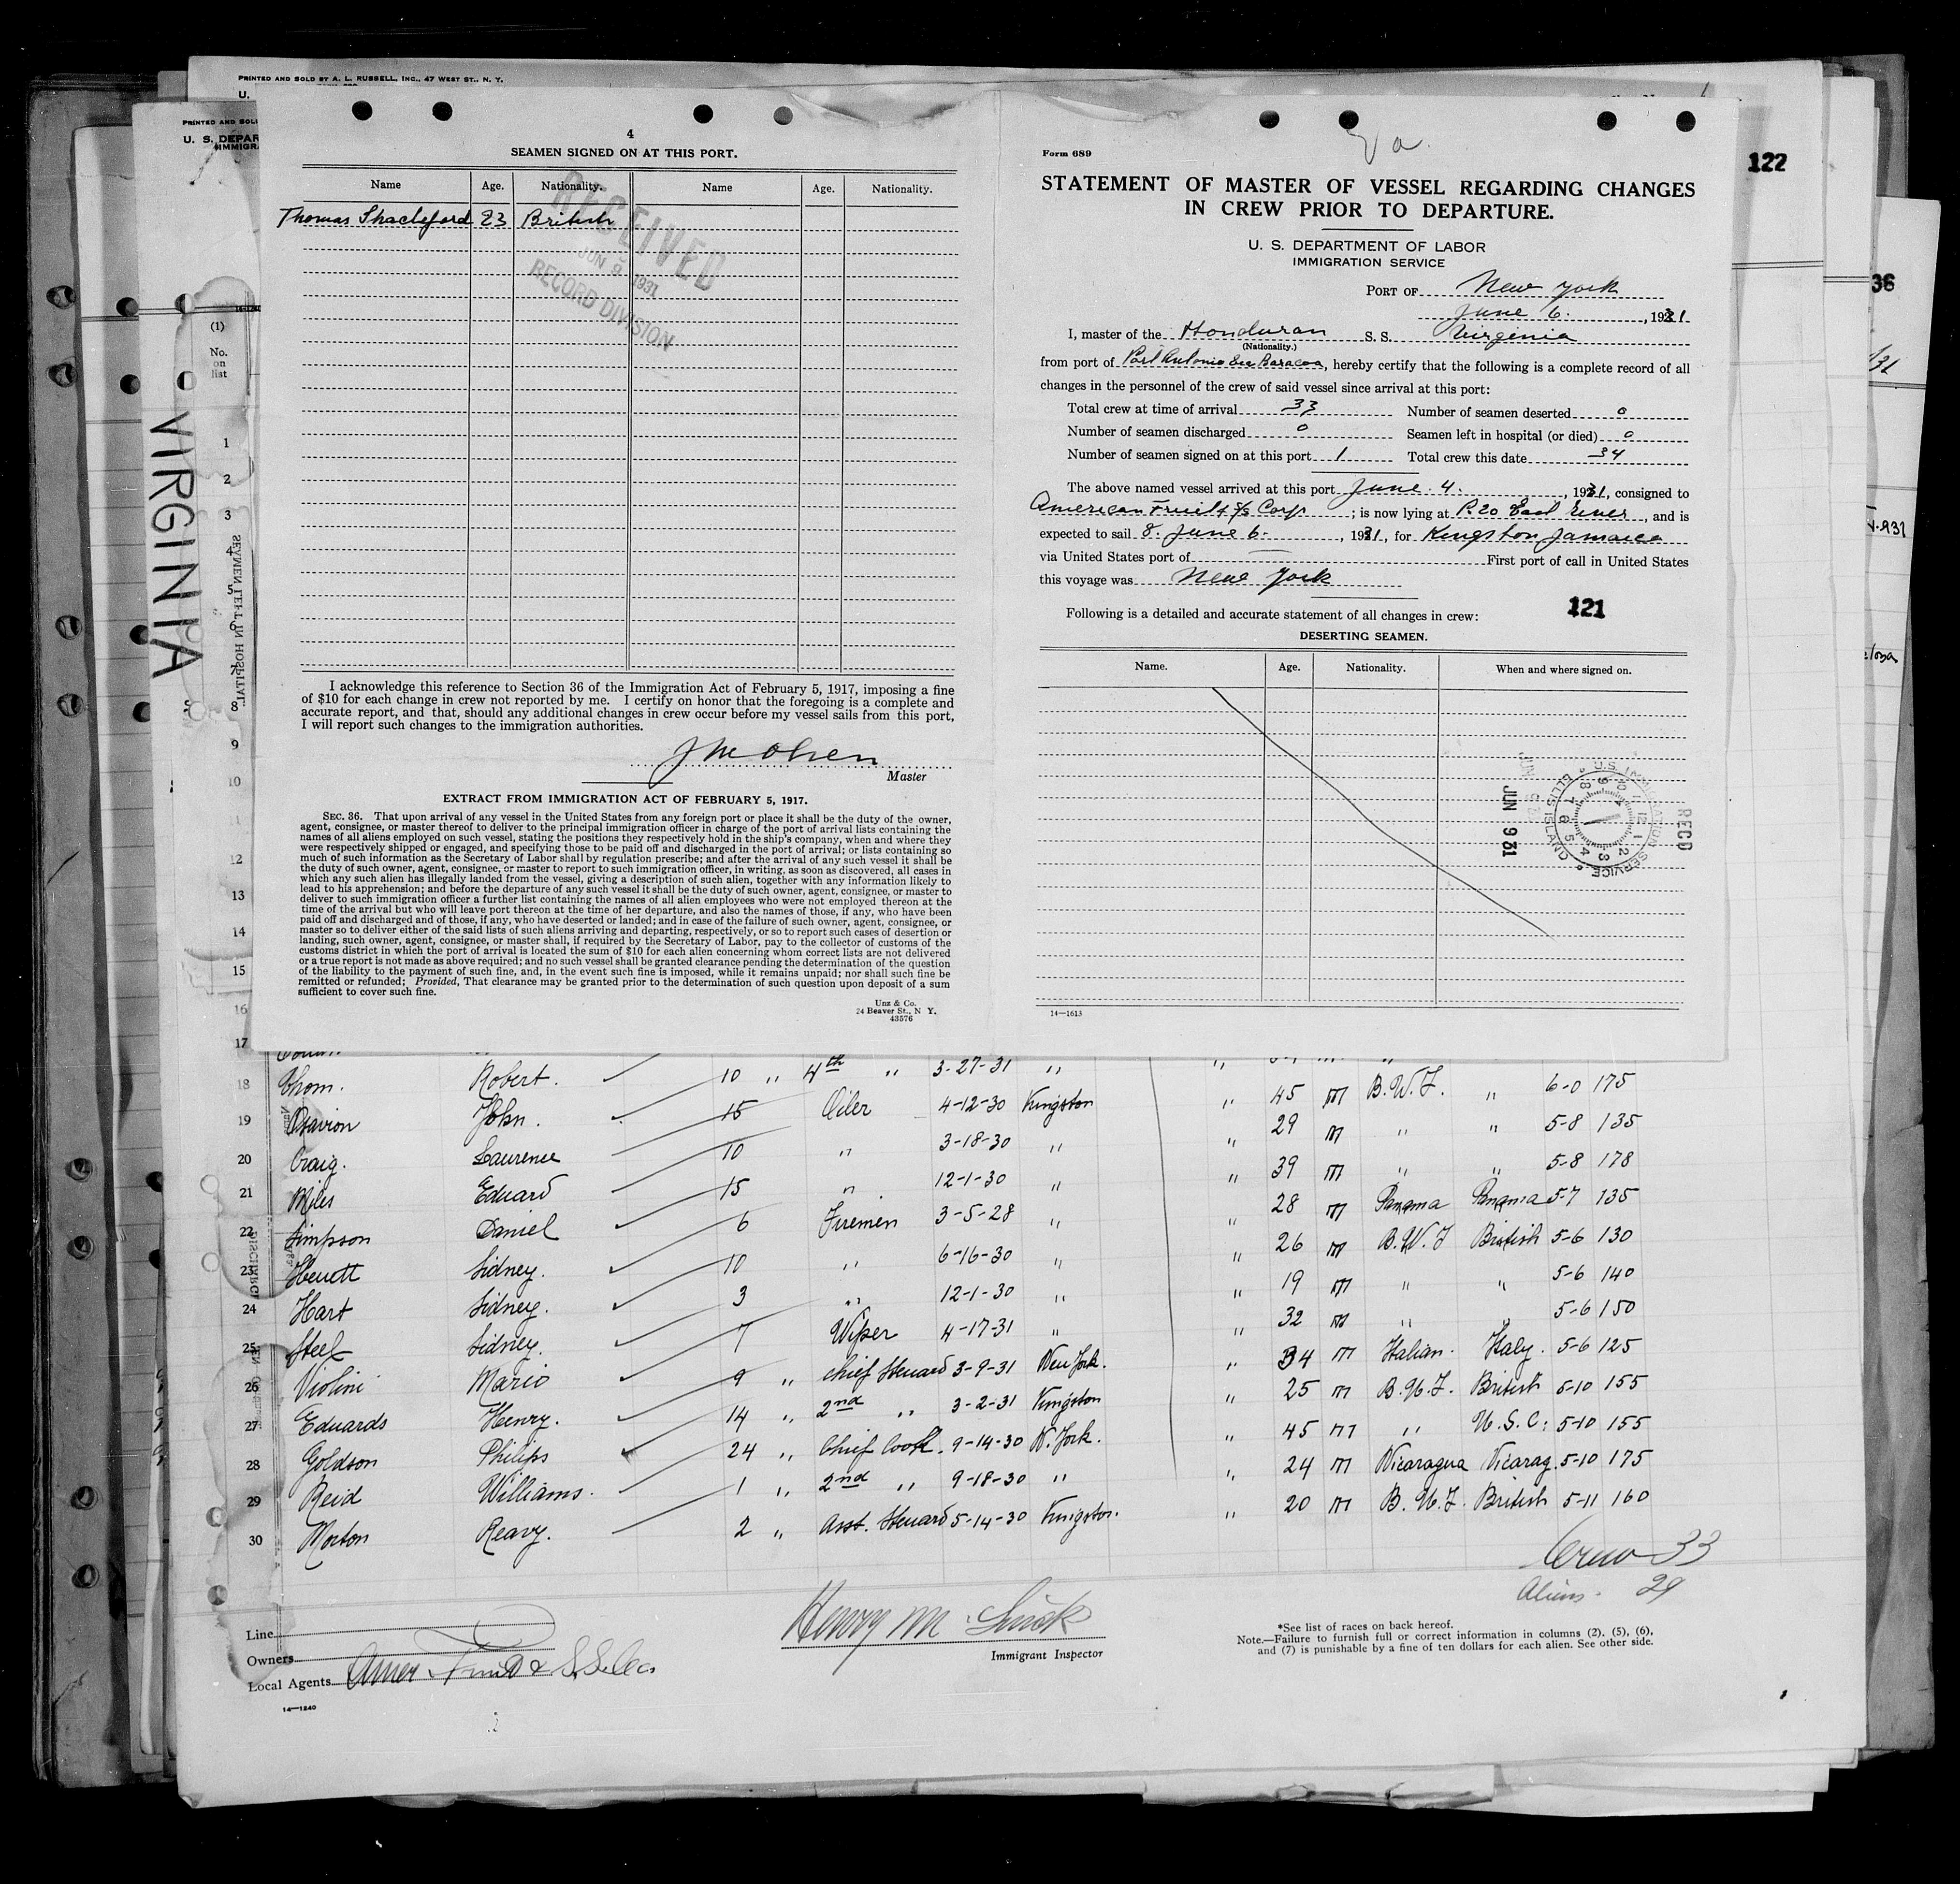 PRINTED AND SOLD BY A. L. RUSSELL, INC., 47 WEST ST., N. Y.
U.
PRINTED AND SOLD
U. S. DEPAR
IMMIGRA
VIRGINIA
(1)
No.
on
list
1
2
3
4
5
6
7
8
9
10
11
12
13
14
15
16
17
SEAMEN LEFT IN HOSPITAL
4
SEAMEN SIGNED ON AT THIS PORT.
Name Age. Nationality. Name Age. Nationality.
Thomas Shackleford 23 British
RECEIVED
JUN 9 1931
RECORD DIVISION
I acknowledge this reference to Section 36 of the Immigration Act of February 5, 1917, imposing a fine
of $10 for each change in crew not reported by me. I certify on honor that the foregoing is a complete and
accurate report, and that, should any additional changes in crew occur before my vessel sails from this port,
I will report such changes to the immigration authorities.
J M Olsen
Master
EXTRACT FROM IMMIGRATION ACT OF FEBRUARY 5, 1917.
SEC. 36. That upon arrival of any vessel in the United States from any foreign port or place it shall be the duty of the owner,
agent, consignee, or master thereof to deliver to the principal immigration officer in charge of the port of arrival lists containing the
names of all aliens employed on such vessel, stating the positions they respectively hold in the ship's company, when and where they
were respectively shipped or engaged, and specifying those to be paid off and discharged in the port of arrival; or lists containing so
much of such information as the Secretary of Labor shall by regulation prescribe; and after the arrival of any such vessel it shall be
the duty of such owner, agent, consignee, or master to report to such immigration officer, in writing, as soon as discovered, all cases in
which any such alien has illegally landed from the vessel, giving a description of such alien, together with any information likely to
lead to his apprehension; and before the departure of any such vessel it shall be the duty of such owner, agent, consignee, or master to
deliver to such immigration officer a further list containing the names of all alien employees who were not employed thereon at the
time of the arrival but who will leave port thereon at the time of her departure, and also the names of those, if any, who have been
paid off and discharged and of those, if any, who have deserted or landed; and in case of the failure of such owner, agent, consignee, or
master so to deliver either of the said lists of such aliens arriving and departing, respectively, or so to report such cases of desertion or
landing, such owner, agent, consignee, or master shall, if required by the Secretary of Labor, pay to the collector of customs of the
customs district in which the port of arrival is located the sum of $10 for each alien concerning whom correct lists are not delivered
or a true report is not made as above required; and no such vessel shall be granted clearance pending the determination of the question
of the liability to the payment of such fine, and, in the event such fine is imposed, while it remains unpaid; nor shall such fine be
remitted or refunded; Provided, That clearance may be granted prior to the determination of such question upon deposit of a sum
sufficient to cover such fine.
Unz & Co.
24 Beaver St., N Y.
43576
Va.
Form 689
STATEMENT OF MASTER OF VESSEL REGARDING CHANGES
IN CREW PRIOR TO DEPARTURE.
U. S. DEPARTMENT OF LABOR
IMMIGRATION SERVICE
PORT OF New York
June 6. , 1931
I, master of the Honduran S. S. Virginia
(Nationality.)
from port of Port Antonio Baracoa, hereby certify that the following is a complete record of all
changes in the personnel of the crew of said vessel since arrival at this port:
Total crew at time of arrival 33 Number of seamen deserted 0
Number of seamen discharged 0 Seamen left in hospital (or died) 0
Number of seamen signed on at this port 1 Total crew this date 34
The above named vessel arrived at this port June 4. , 1931, consigned to
American Fruit & S/S Corp ; is now lying at P. 20 East River , and is
expected to sail June 6 , 1931, for Kingston Jamaica
via United States port of — First port of call in United States
this voyage was New York
Following is a detailed and accurate statement of all changes in crew:
121
DESERTING SEAMEN.
Name. Age. Nationality. When and where signed on.
JUN 9 31
U.S. IMMIGRATION SERVICE
ELLIS ISLAND
RECD
14—1613
122
36
18 Chom. Robert. 10 " 4th " 3-27-31 "
19 Otavion John. 15 Oiler 4-12-30 Kingston " 45 m B.W.I. " 6-0 175
20 Craig. Laurence 10 " 3-18-30 " " 29 m " " 5-8 135
21 Miles Eduard 15 " 12-1-30 " " 39 m " " 5-8 178
22 Simpson Daniel 6 Firemen 3-5-28 " " 28 m Panama Panama 5-7 135
23 Heuett Sidney. 10 " 6-16-30 " " 26 m B.W.I British 5-6 130
24 Hart Sidney. 3 " 12-1-30 " " 19 m " " 5-6 140
25 Steel Sidney. 7 Wiper 4-17-31 " " 32 m " " 5-6 150
26 Violini Mario 9 " Chief Steuard 3-9-31 New York. " 34 m Italian. Italy. 5-6 125
27 Eduards Henry. 14 " 2nd " 3-2-31 Kingston " 25 m B.W.I. British 5-10 155
28 Goldson Philips 24 " Chief Cook. 9-14-30 N. York. " 45 m " U.S.C. 5-10 155
29 Reid Williams. 1 " 2nd " 9-18-30 " " 24 m Nicaragua Nicarag. 5-10 175
30 Morton Reavy. 2 " Asst. Steuard 5-14-30 Kingston. " 20 m B.W.I. British 5-11 160
Crew 33
Aliens. 29
Line
Owners
Local Agents Amer Fruit & S.S. Co.
14—1240
Henry M.
Immigrant Inspector
*See list of races on back hereof.
Note.—Failure to furnish full or correct information in columns (2), (5), (6),
and (7) is punishable by a fine of ten dollars for each alien. See other side.